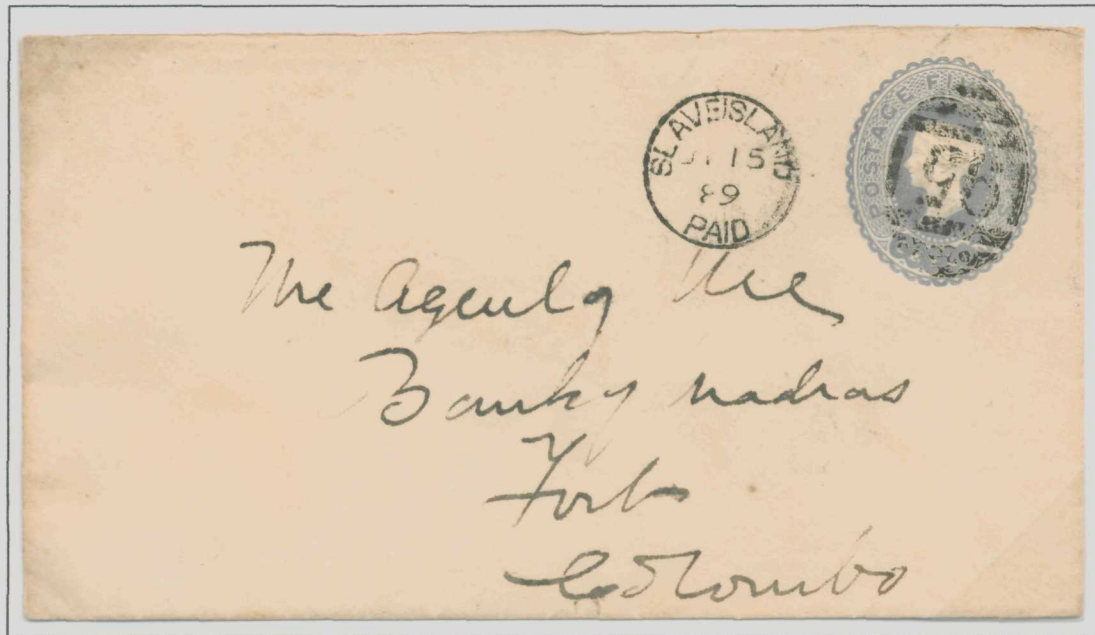 SLAVE ISLAND
15
89
PAID
POSTAGE FIVE
The Agent of the
Bank of Madras
Fort
Colombo